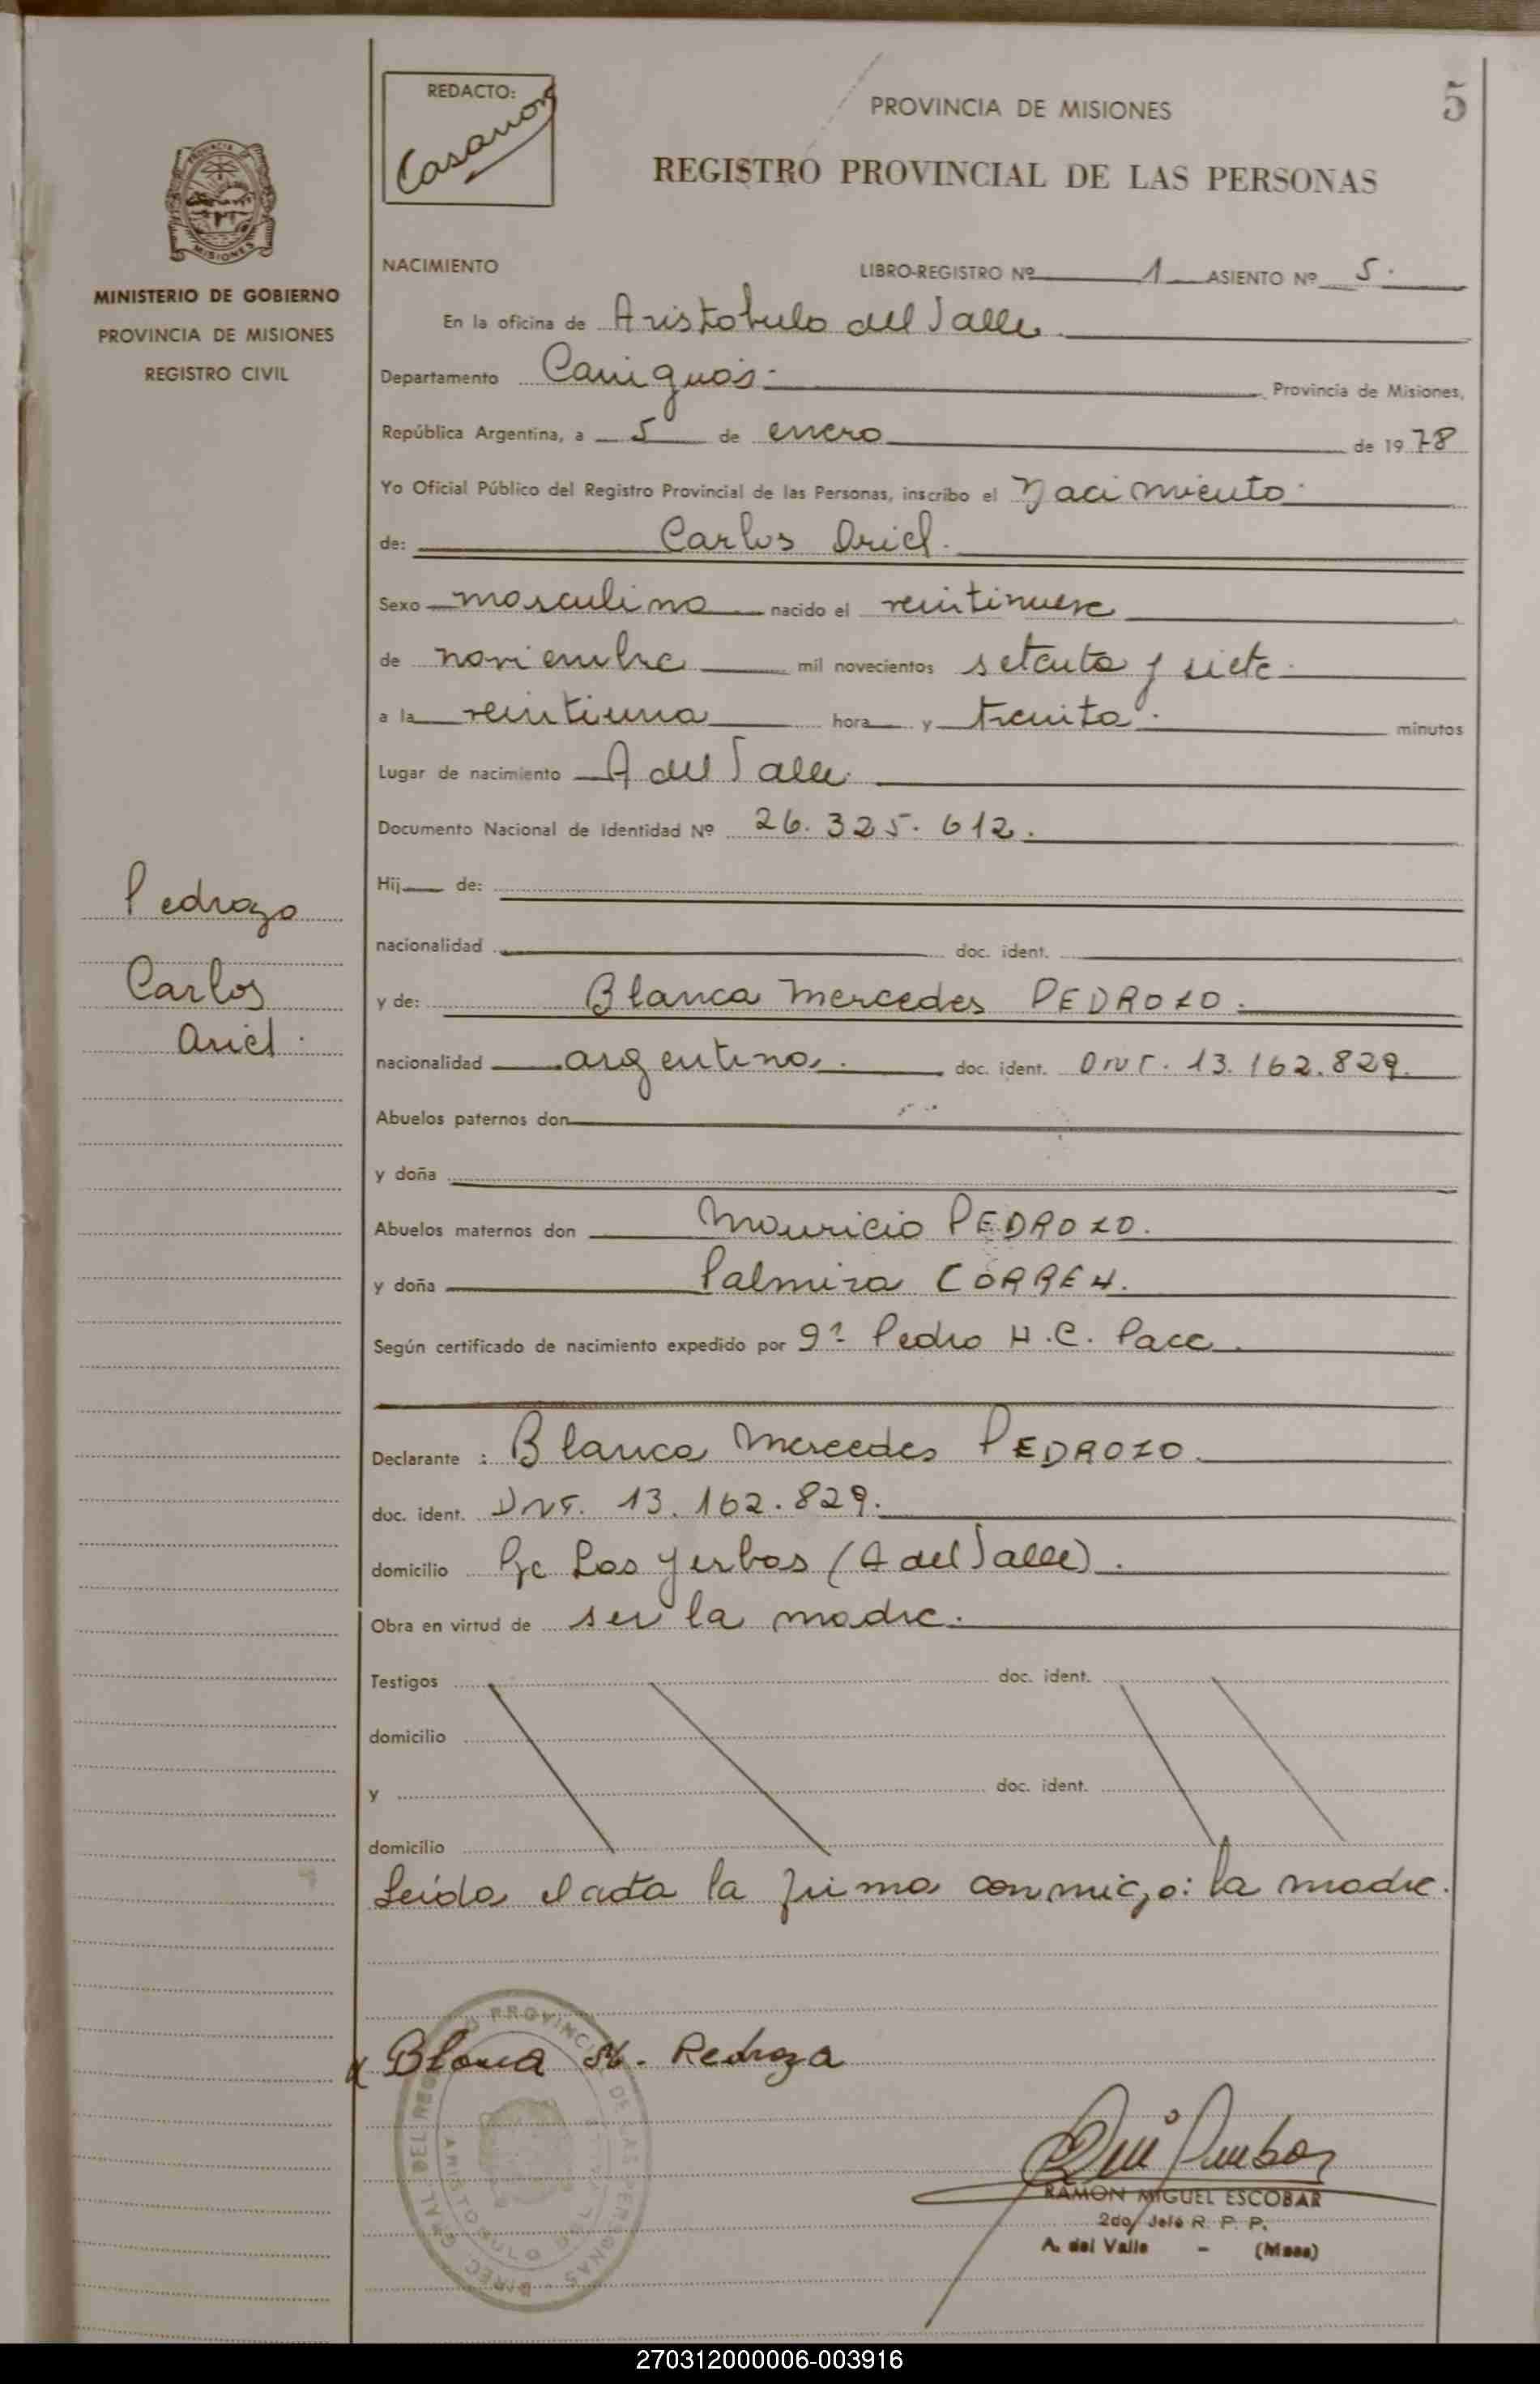 REDACTO:
PROVINCIA DE MISIONES
5
REGISTRO PROVINCIAL DE LAS PERSONAS
PROVINCIA DE
MISIONES
MINISTERIO DE GOBIERNO
PROVINCIA DE MISIONES
REGISTRO CIVIL
NACIMIENTO LIBRO-REGISTRO Nº 1 ASIENTO Nº 5.
En la oficina de Aristobulo del Valle
Departamento Cainguás Provincia de Misiones,
República Argentina, a 5 de enero de 1978
Yo Oficial Público del Registro Provincial de las Personas, inscribo el Nacimiento
de: Carlos Ariel.
Sexo masculino nacido el veintinueve
de noviembre mil novecientos setenta y siete
a la veintiuna hora y treinta minutos
Lugar de nacimiento A del Valle
Documento Nacional de Identidad Nº 26.325.612.
Hij de:
nacionalidad doc. ident.
Pedrozo
Carlos
Ariel
y de: Blanca Mercedes PEDROZO.
nacionalidad argentina. doc. ident. DNI. 13.162.829.
Abuelos paternos don
y doña
Abuelos maternos don Mauricio PEDROZO.
y doña Palmira
Según certificado de nacimiento expedido por Pedro H.C.
Declarante : Blanca Mercedes PEDROZO.
doc. ident. DNI. 13.162.829.
domicilio Las Yerbas (A del Valle).
Obra en virtud de ser la madre.
Testigos doc. ident.
domicilio
y doc. ident.
domicilio
Leida el acta la firma conmigo: la madre.
Blanca M. Pedroza
DIREC. GRAL. DEL REGISTRO PROVINCIAL DE LAS PERSONAS
ARISTOBULO DEL VALLE
RAMON MIGUEL ESCOBAR
2do Jefe R. P. P.
A. del Valle - (Mnes)
270312000006-003916